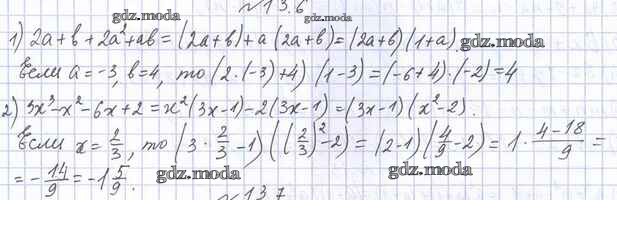 № 13.6
gdz.moda gdz.moda
1) 2a+b+2a²+ab=(2a+b)+a(2a+b)=(2a+b)(1+a). gdz.moda
Если a=-3, b=4, то (2·(-3)+4)(1-3)=(-6+4)·(-2)=4
gdz.moda
2) 3x³-x²-6x+2=x²(3x-1)-2(3x-1)=(3x-1)(x²-2).
Если x=2/3, то (3·2/3-1)((2/3)²-2)=(2-1)(4/9-2)=1·(4-18)/9=
=-14/9=-1 5/9. gdz.moda gdz.moda
№ 13.7